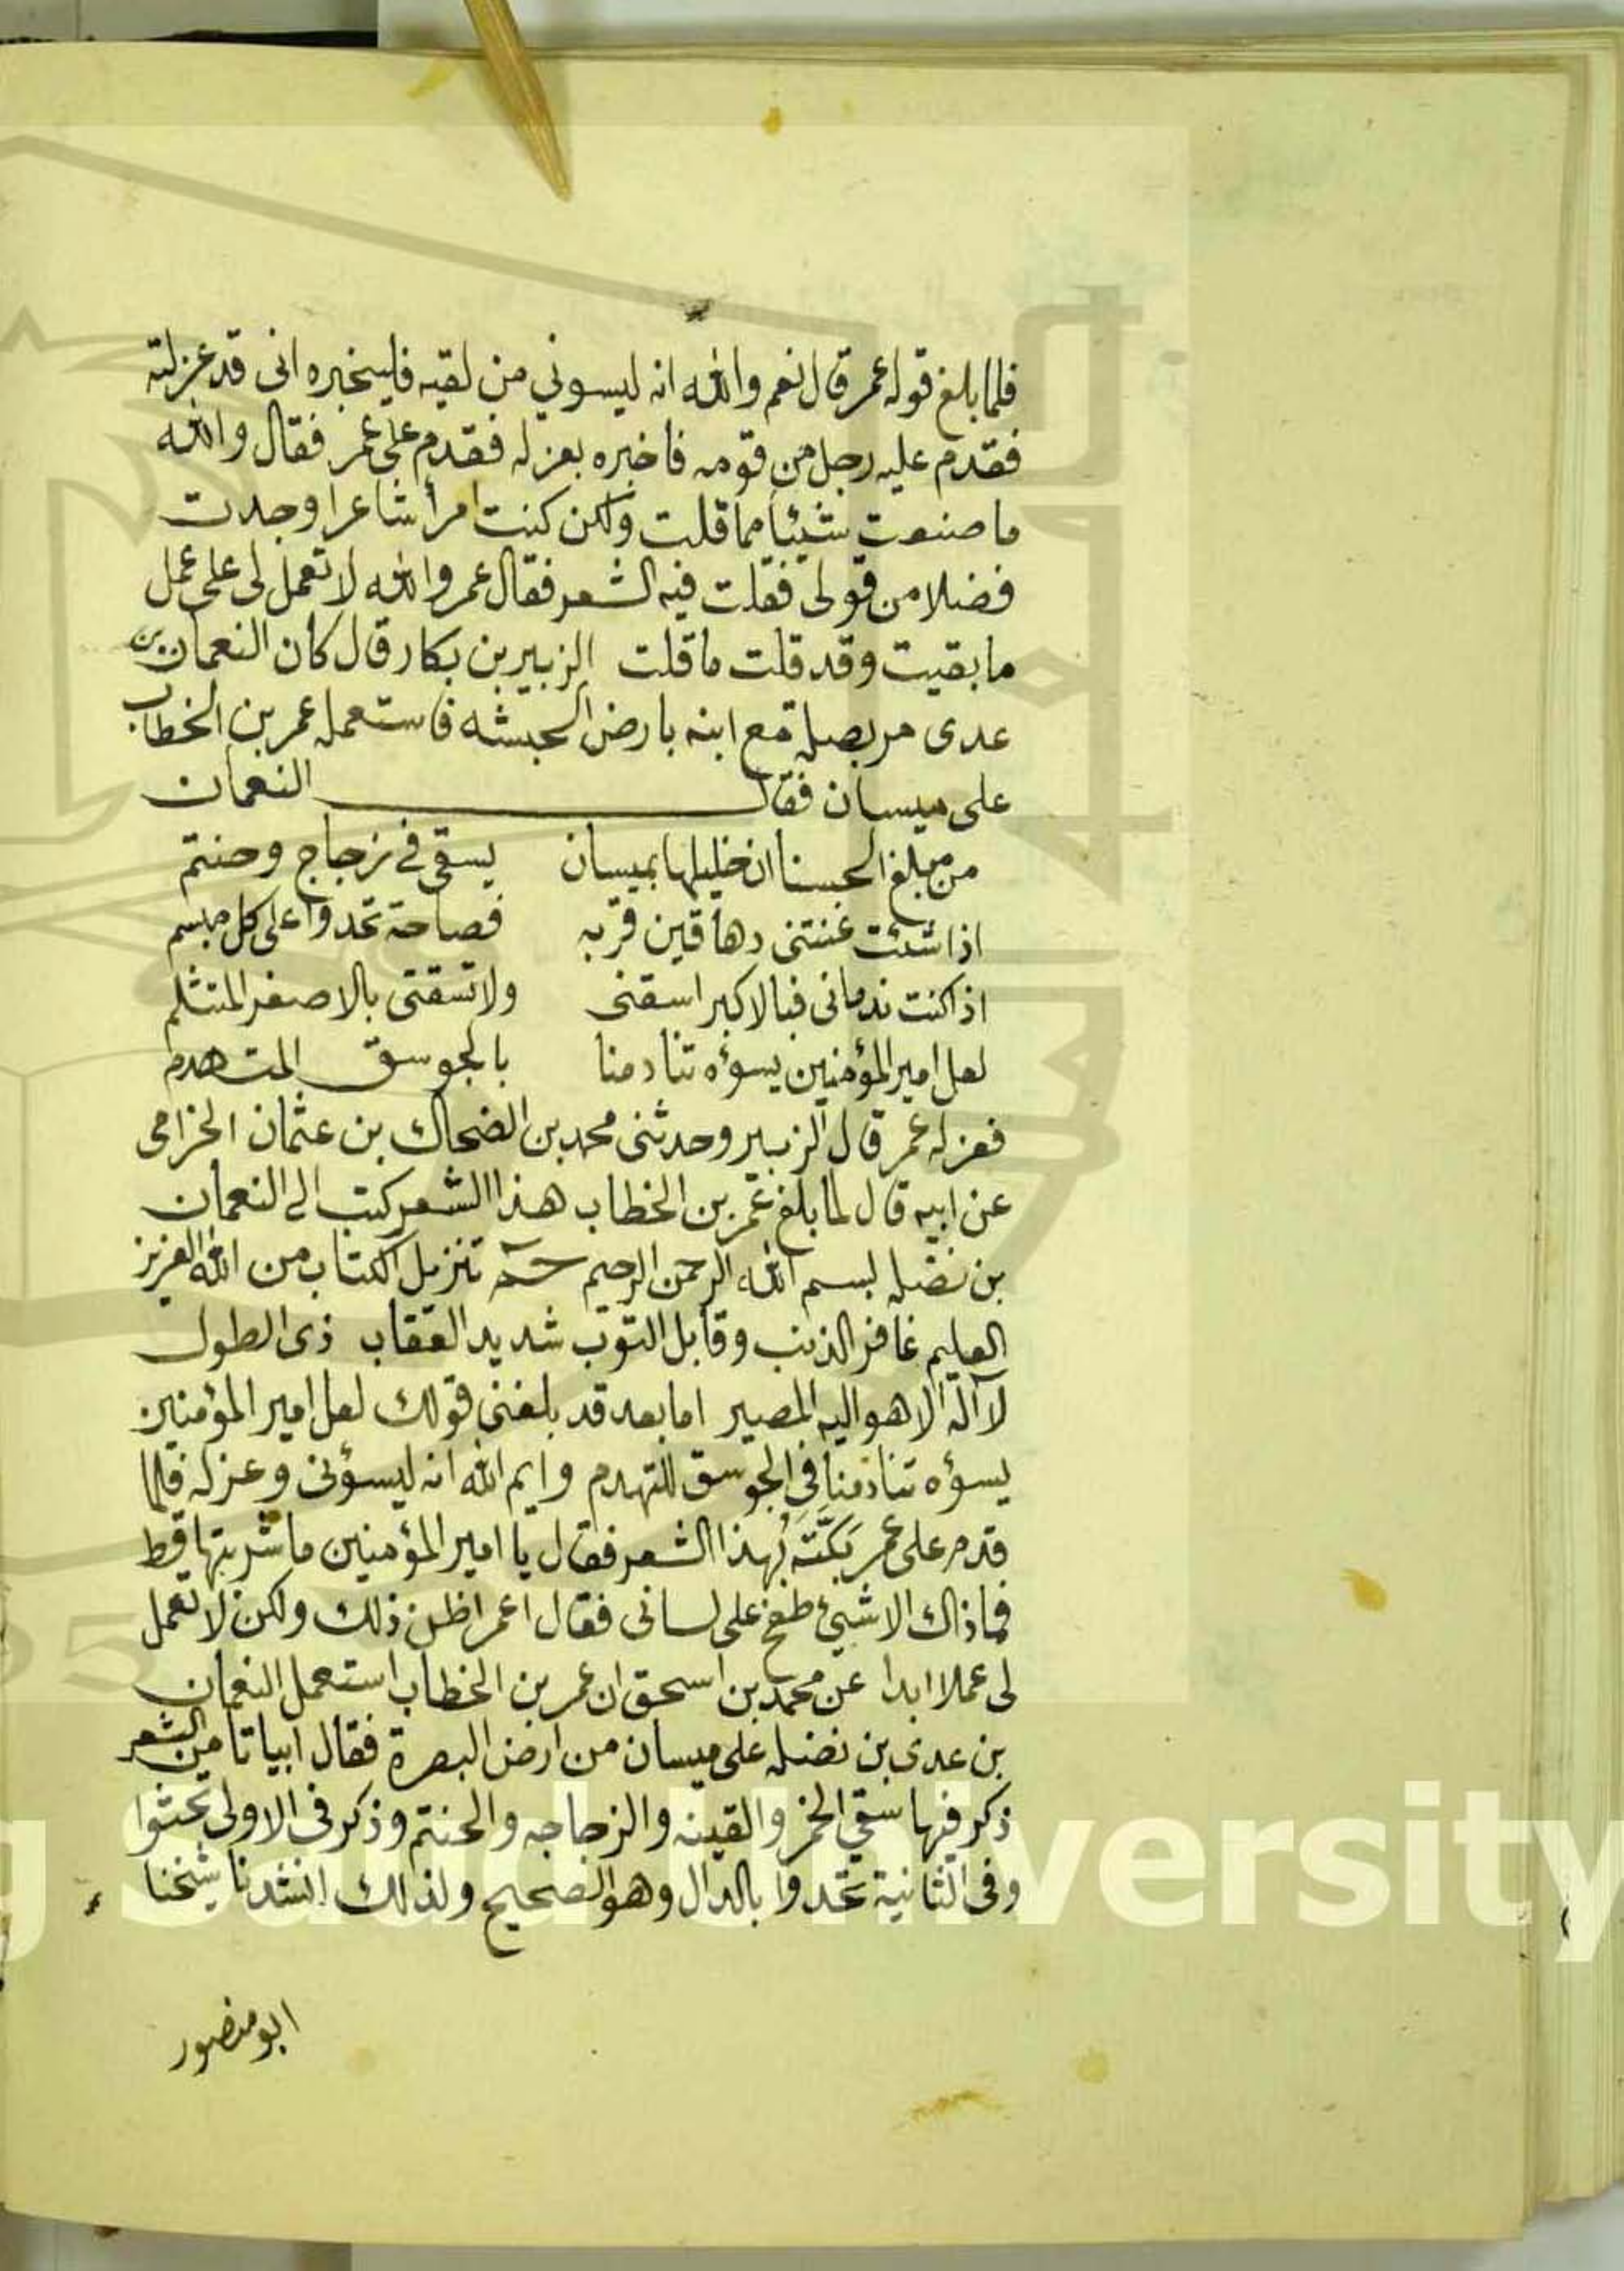 فلما بلغ قوله عمر قال نعم والله انه ليسوني من لقيه فليخبره انى قد عزلته
فقدم عليه رجل من قومه فاخبره بعزله فقدم على عمر فقال والله
ما صنعت شيئا مما قلت ولكن كنت امرأ شاعرا وجدت
فضلا من قولى فقلت فيه الشعر فقال عمر والله لا تعمل لى على عمل
ما بقيت وقد قلت ما قلت الزبير بن بكار قال كان النعمان بن
عدى مع ابنه بارض الحبشه فاستعمله عمر بن الخطاب
على ميسان فقال النعمان
من مبلغ الحسنا ان خليلها بميسان يسقى فى زجاج وحنتم
اذا شئت غنتنى دهاقين قربه فصاحة تحدوا على كل مبسم
اذا كنت ندمانى فبالاكبر اسقنى ولا تسقنى بالاصغر المتثلم
لعل امير المؤمنين يسؤه تنادمنا بالجوسق المتهدم
فعزله عمر قال الزبير وحدثنى محمد بن الضحاك بن عثمان الخزامى
عن ابيه قال لما بلغ عمر بن الخطاب هذا الشعر كتب الى النعمان
بن نضله بسم الله الرحمن الرحيم حم تنزيل الكتاب من الله العزيز
العليم غافر الذنب وقابل التوب شديد العقاب ذى الطول
لا اله الا هو اليه المصير اما بعد قد بلغنى قولك لعل امير المؤمنين
يسؤه تنادمنا فى الجوسق المتهدم وايم الله انه ليسؤنى وعزله فلما
قدم على عمر بكته بهذا الشعر فقال يا امير المؤمنين ما شربتها قط
فما ذاك الا شيئ طفح على لسانى فقال اعمر اظن ذلك ولكن لا تعمل
لى عملا ابدا عن محمد بن اسحق ان عمر بن الخطاب استعمل النعمان
بن عدى بن نضله على ميسان من ارض البصرة فقال ابياتا من الشعر
ذكر فيها سقي الخمر والقينه والزجاجه والحنتم وذكر فى الاولى تجثوا
وفى الثانية تحدوا بالدال وهو الصحيح ولذلك انشدنا شيخنا
ابو منصور
g Saud University